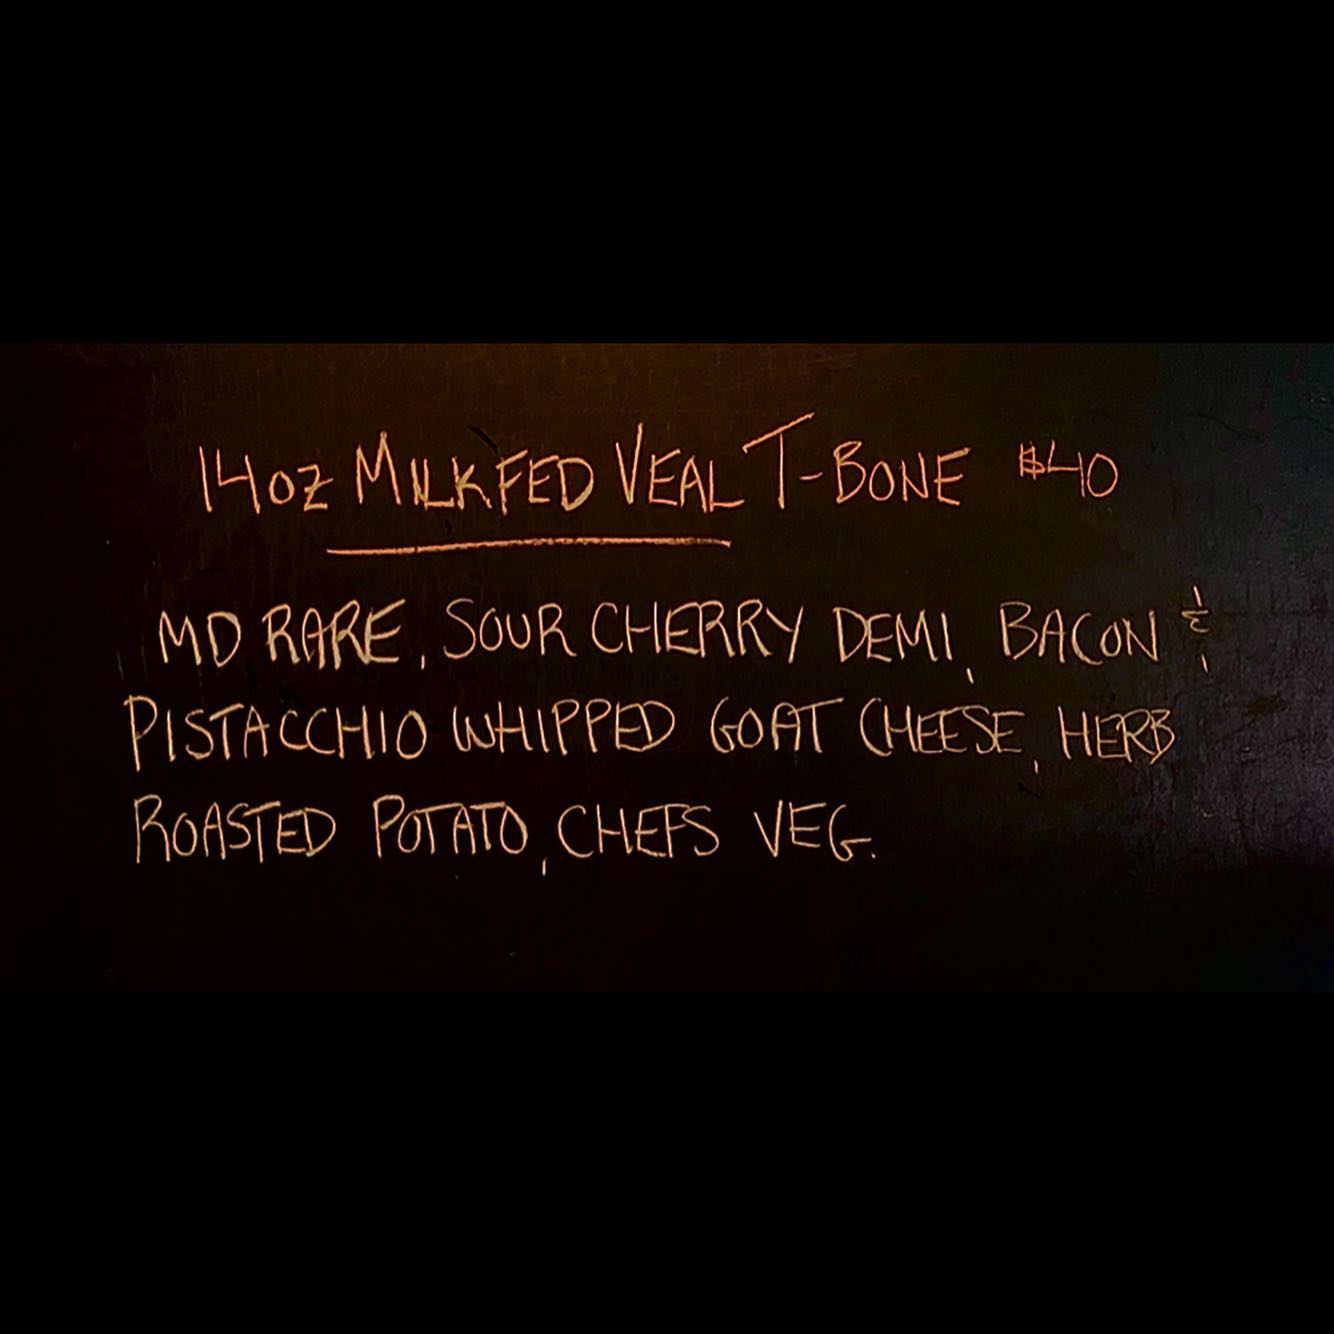 14oz MILKFED VEAL T-BONE $40
MD RARE, SOUR CHERRY DEMI, BACON &
PISTACCHIO WHIPPED GOAT CHEESE, HERB
ROASTED POTATO, CHEFS VEG.